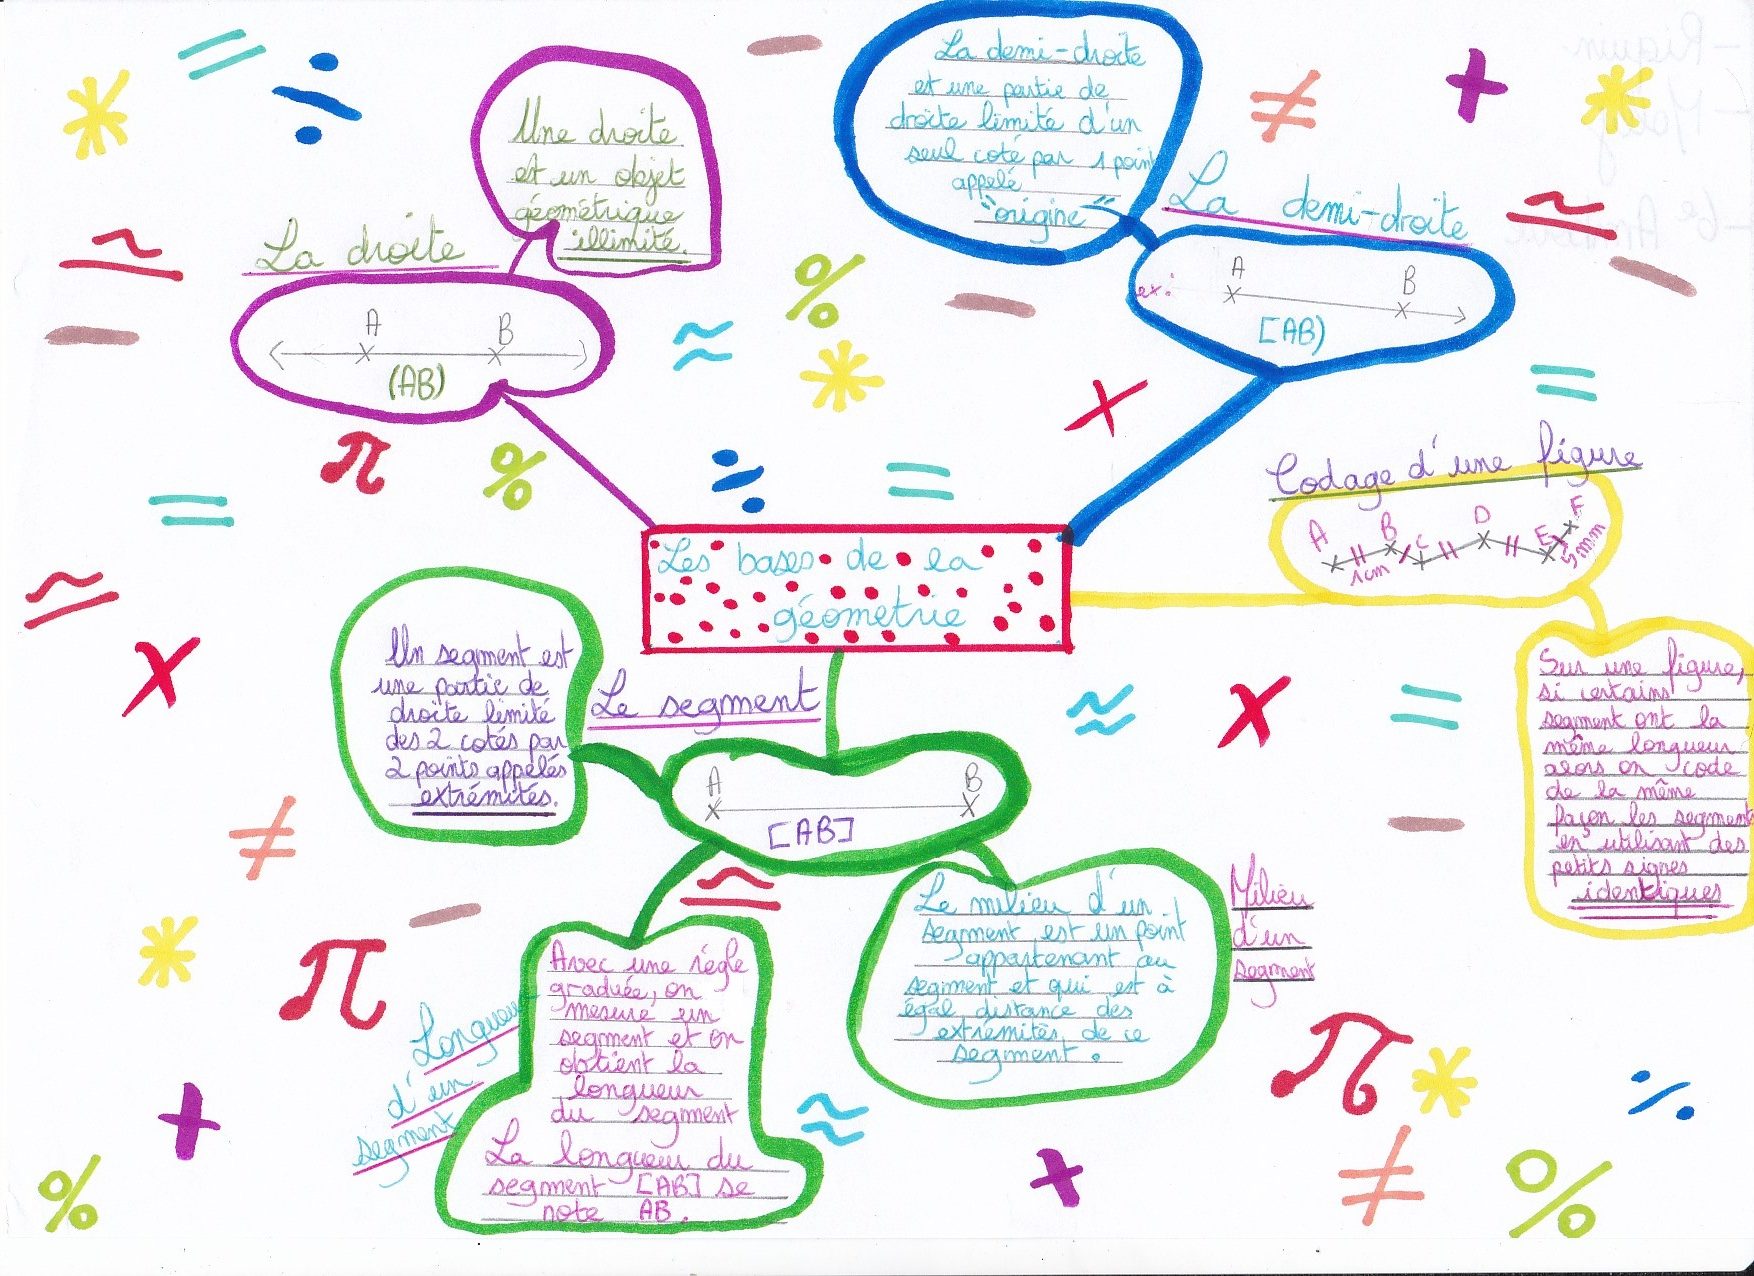 Les bases de la
géometrie
La droite
Une droite
est un objet
géométrique
illimité.
A B
(AB)
La demi-droite
La demi-droite
est une partie de
droite limité d'un
seul coté par 1 point
appelé
"origine"
ex:
A B
[AB)
Codage d'une figure
A B C D E F
1cm
5mm
Sur une figure,
si certains
segment ont la
même longueur
alors on code
de la même
façon les segment
en utilisant des
petits signes
identiques
Le segment
Un segment est
une partie de
droite limité
des 2 cotés par
2 points appelés
extrémités.
A B
[AB]
Milieu
d'un
segment
Le milieu d'un
segment est un point
appartenant au
segment et qui est à
égal distance des
extrémités de ce
segment.
Longueur
d'un
segment
Avec une régle
graduée, on
mesure un
segment et on
obtient la
longueur
du segment
La longueur du
segment [AB] se
note AB.